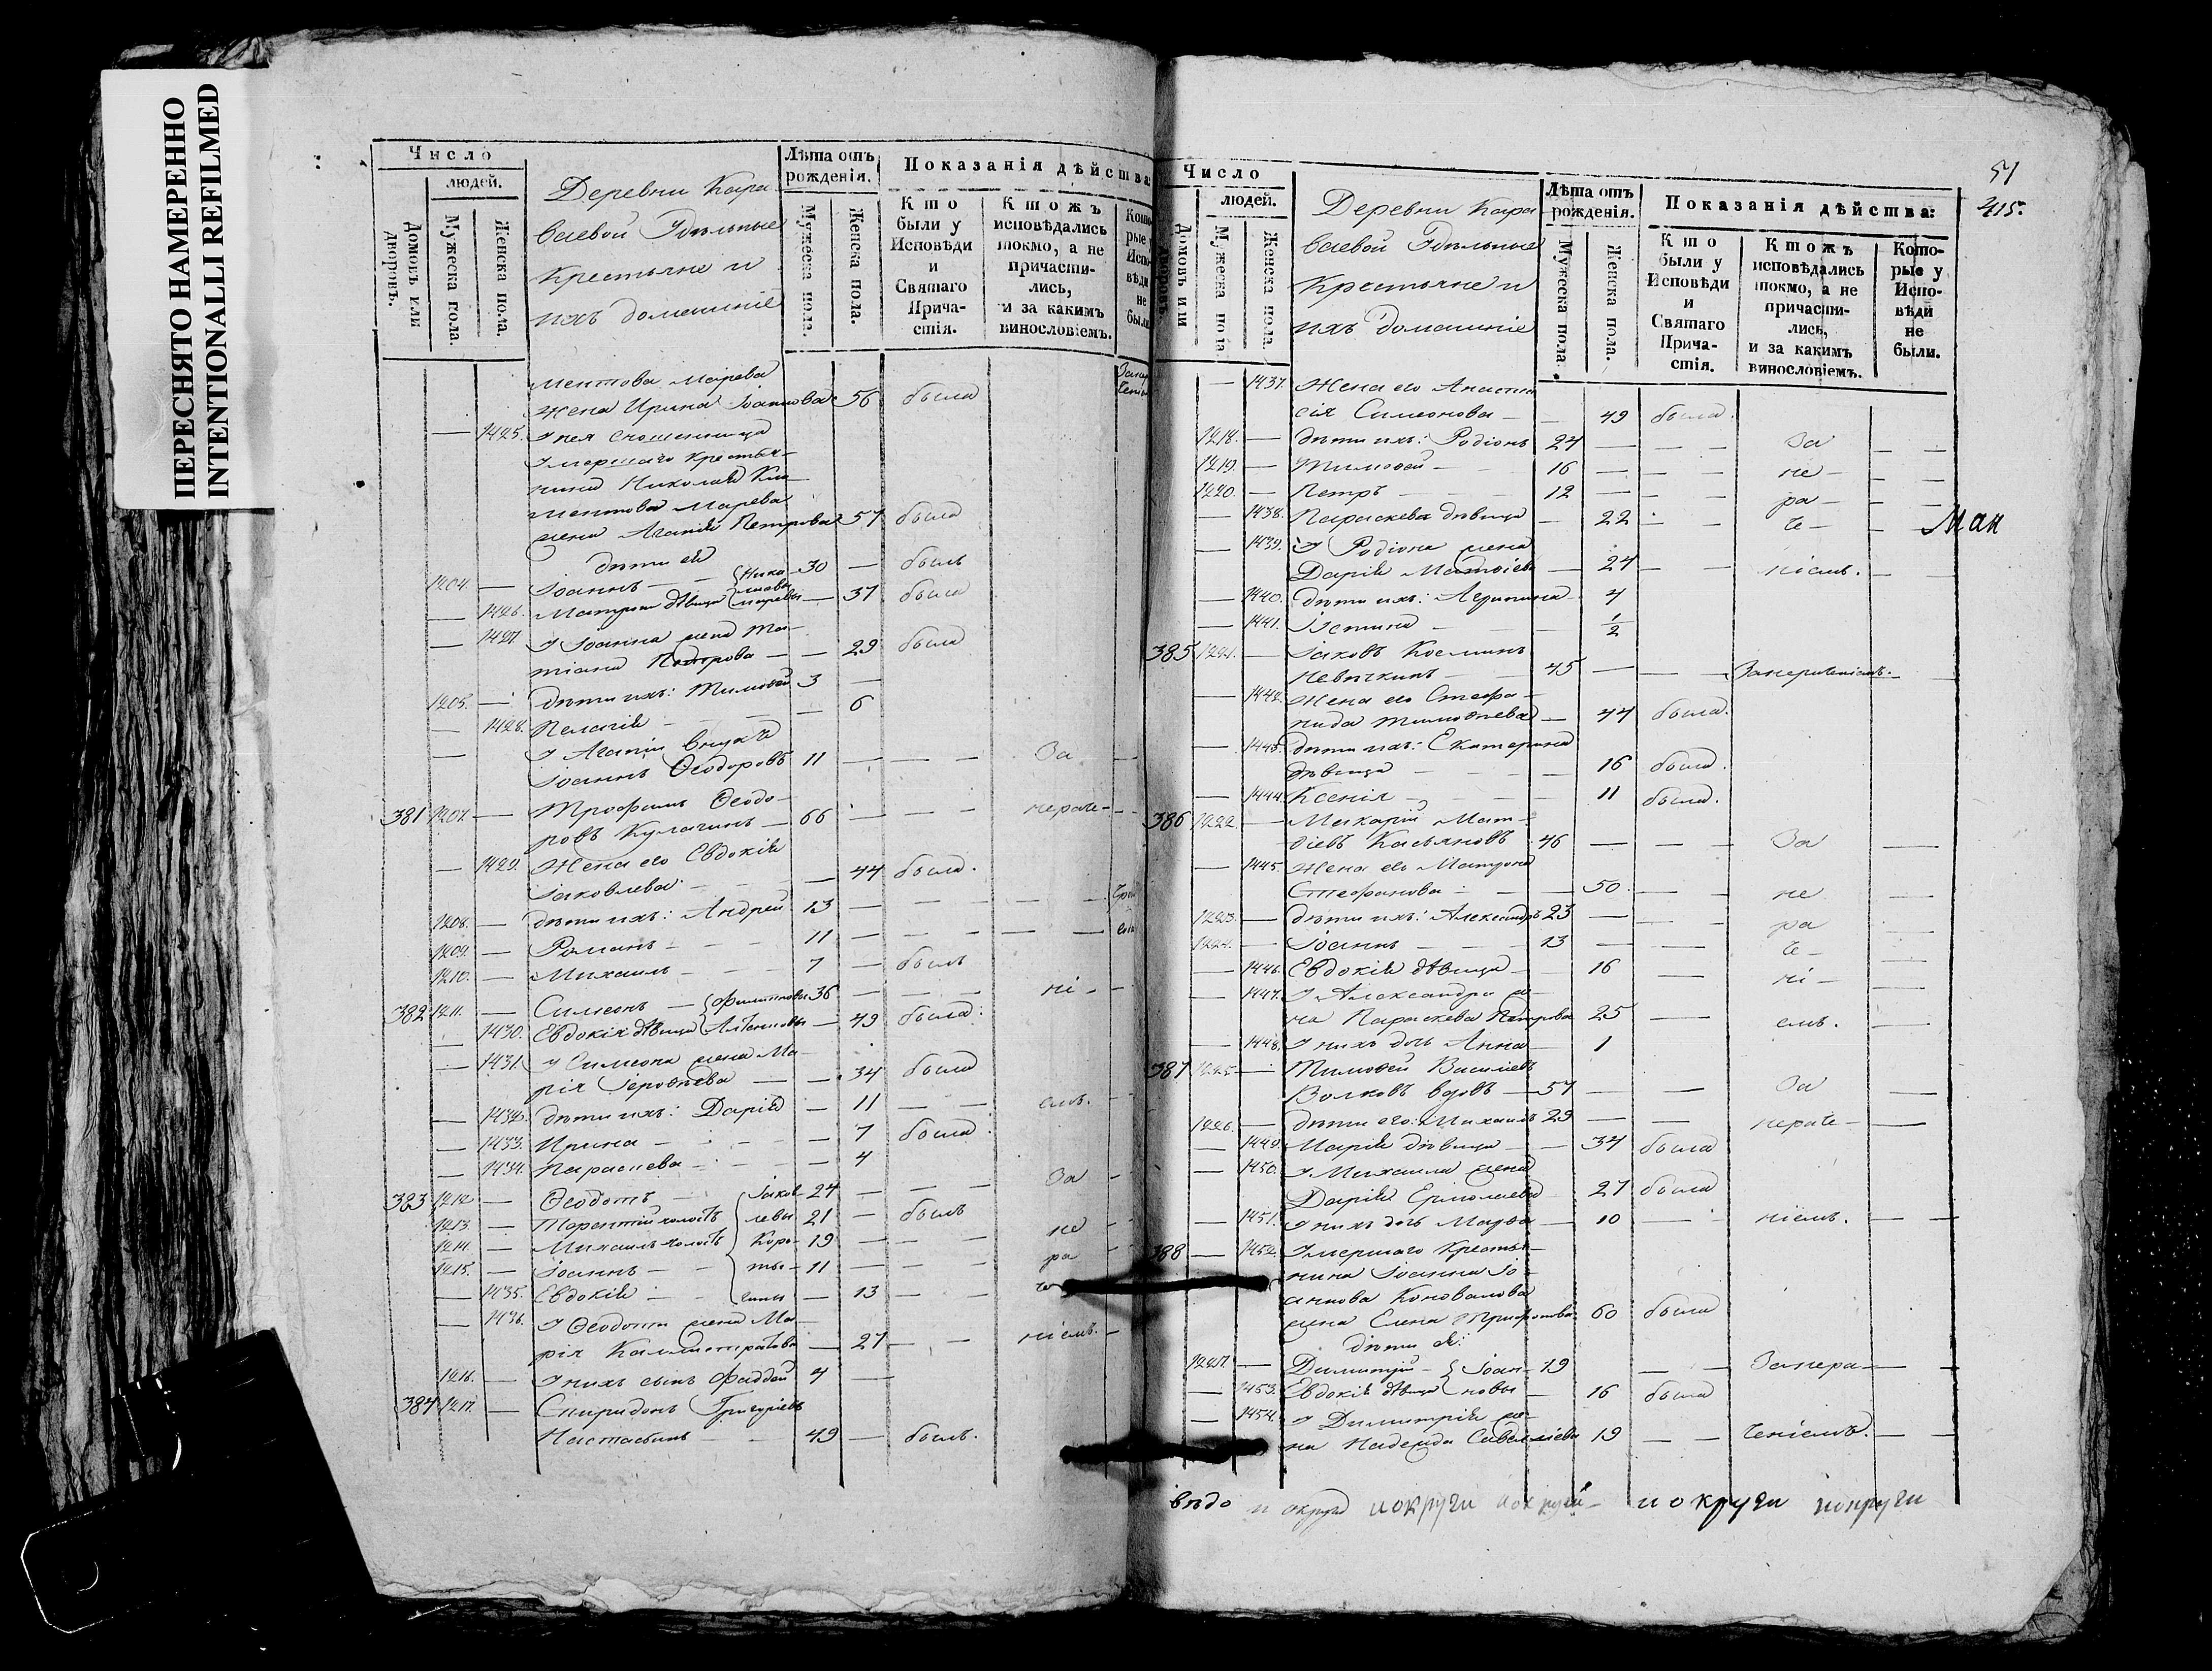 ПЕРЕСНЯТО НАМЕРЕННО
INTENTIONALLI REFILMED
Число
людей.
Домовъ или дворовъ.
Мужеска пола.
Женска пола.
Деревни Кара
баевой Удѣльные
Крестьяне и
ихъ домашніе
Лѣта отъ рожденія.
Мужеска пола.
Женска пола.
Показанія дѣйства:
Кто были у Исповѣди и Святаго Причастія.
Ктожъ исповѣдались токмо, а не причастились, и за какимъ винословіемъ.
Которые у Исповѣди не были
ментова Марева
жена Ирина Іоаннова 56 была
1425. У нея сношенница
Умершаго крестья-
нина Николая Кли-
ментова Марева
жена Агапія Петрова 57 была
дѣти ея
1204. — Іоаннъ — 30 — былъ
— 1426. дѣвица — 37 была
— 1427. У Іоанна жена Та-
тіана Петрова — — 29 была
1205. — дѣти ихъ: Тимофей 3 —
— 1428. Пелагія — 6
— У Агапіи внукъ
Іоаннъ Ѳеодоровъ 11 — — — За
381 1207. — Трофимъ Ѳеодо-
ровъ Кулагинъ — 66 — — — нераче-
— 1429. Жена его Евдокія
Іаковлева — — 44 была.
1208. — дѣти ихъ: Андрей 13 — — —
1209. — Романъ — 11 — — —
1210. — Михаилъ — 7 — былъ
382 1211. — Симеонъ — 36 — — — ні-
— 1430. Евдокія дѣвица — 49 была.
— 1431. У Симеона жена Ма-
рія — — 34 была
— 1432. дѣти ихъ: Дарія — 11 — — емъ.
— 1433. Ирина — 7 была.
— 1434. Параскева — 4
383 1212 — Ѳеодотъ — Іаков- 24 — — — За
1213. — холостъ левы 21 — былъ
1214. — Михаилъ холостъ Коро- 19 — — — не
1215. — Іоаннъ — ты- 11 — — — ра
— 1435. Евдокія — гины — 13 — — че
— 1436. У Ѳеодота жена Ма-
рія Каллистратова — 27 — — ніемъ.
1216. — У нихъ сынъ Фаддей 4 —
384 1217. — Спиридонъ Григорьевъ
49 — былъ.
54
415.
Число
людей.
Домовъ или дворовъ.
Мужеска пола
Женска пола.
Деревни Кара
баевой Удѣльные
Крестьяне и
ихъ домашніе
Лѣта отъ рожденія.
Мужеска пола
Женска пола.
Показанія дѣйства:
Кто были у Исповѣди и Святаго Причастія.
Ктожъ исповѣдались токмо, а не причастились, и за какимъ винословіемъ.
Которые у Исповѣди не были.
— 1437. Жена его Анаста
сія Симеонова — — 49 была.
1218. — дѣти ихъ: Родіонъ 24 — — За
1219. — Тимофей — 16 — — не —
1220. — Петръ — 12 — — ра —
— 1438. Параскева дѣвица — 22 — че —
— 1439. У Родіона жена
Дарія — 24 — — ніемъ. —
— 1440. дѣти ихъ: Агрипина 4
— 1441. — 1/2
385 1221. — Іаковъ Косминъ
45 — — Занераченіемъ.
— 1442. Жена его Стефа-
нида Тимофеева — 44 была.
— 1443. дѣти ихъ: Екатерина
дѣвица — — 16 была.
— 1444. Ксенія — 11 была.
386 1222. — Макарій Мат-
ѳіевъ Касьяновъ 46 — — За
— 1445. Жена его Матрона
Стефанова — — 50. — — не
1223. — дѣти ихъ: Александръ 23 — — ра
1224. — Іоаннъ — 13 — — че —
— 1446. Евдокія дѣвица — 16 — ні —
— 1447. У Александра же-
на Параскева Петрова 25 — емъ.
— 1448. У нихъ дочь Анна — 1
387 1225. — Тимофей Васильевъ
Волковъ вдовъ — 57 — — За
1226. — дѣти его: Михаилъ 29 — — нераче —
— 1449. Марія дѣвица — 34 была
— 1450. У Михаила жена
Дарія Ермолаева 27 была
— 1451. У нихъ дочь Марѳа — 10 — ніемъ. —
388 — 1452. Умершаго Крестья-
нина Іоанна Іо-
аннова Коновалова
жена Елена 60 была
дѣти ея:
1227. — Димитрій — Іоан- 19 — — Занера —
— 1453. Евдокія дѣвица новы — 16 была
— 1454. У Димитрія же-
на Надежда Савелліева 19 — — ченіемъ. —
Ман
вѣдо и округи и округи и округи и округи и округи